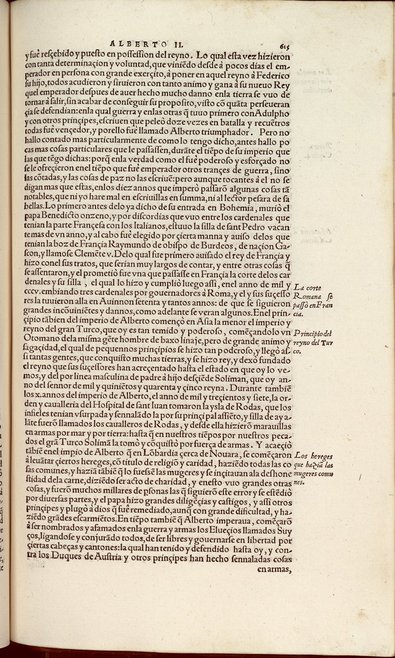 ALBERTO II. 615
y fué resçebido y puesto en possession del reyno. Lo qual esta vez hizieron
con tanta determinaçion y voluntad, que viniẽdo desde à pocos días el em
perador en persona con grande exerçito, à poner en aquel reyno à Federico
su hijo, todos acudieron y siruieron con tanto animo y gana à su nueuo Rey
quel emperador despues de auer hecho mucho danno enla tierra se vuo de
tornar à salir, sin acabar de conseguir su proposito, visto cõ quãta perseueran
çia se defendian: enla qual guerra y enlas otras q̃ tuuo primero con Adulpho
y con otros prinçipes, escriuen que peleò doze vezes en batalla y recuẽtros
todas fué vençedor, y porello fué llamado Alberto triumphador. Pero no
hallo contado mas particularmente de como lo tengo dicho, antes hallo po
cas mas cosas particulares que le passassen, durante el tiẽpo de su imperio que
las que tẽgo dichas: porq̃ enla verdad como el fué poderoso y esforçado no
se le ofreçieron enel tiempo que fué emperador otros trançes de guerra, sino
los cõtados, y las cosas de paz no las escriuẽ: pero aunque tocantes à el no se
digan mas que estas, enlos diez annos que imperò passarõ algunas cosas tã
notables, que ni yo hare mal en escriuillas en summa, ni al lector pesara de sa
bellas. Lo primero antes delo ya dicho de su entrada en Bohemia, murió el
papa Benedicto onzeno, y por discordias que vuo entre los cardenales que
tenian la parte Françesa con los Italianos, estuuo la silla de sant Pedro vacan
te mas de vn anno, y al cabo fué elegido por çierta manera y auiso delos que
tenian la boz de Françia Raymundo de obispo de Burdeos, de naçion Gas-
con, y llamose Clemẽte v. Delo qual fué primero auisado el rey de Françia y
hizo conel sus tratos, que serían muy largos de contar, y entre otras cosas q̃
se assentaron, el prometió fue vna que passasse en Françia la corte delos car
denales y su silla, el qual lo hizo y cumplió luego assi, enel anno de mil y
cccv. embiando tres cardenales por gouernadores à Roma, y el y sus suçesso
res la tuuieron alla en Auinnon setenta y tantos annos: de que se siguieron
grandes incõuiniẽtes y dannos, como adelante se veran algunos. Enel prin-
çipio tãbien del imperio de Alberto comẽçó en Asia la menor el imperio y
reyno del gran Turco, que oy es tan temido y poderoso, comẽçandolo vn
Otomano dela misma gẽte hombre de baxo linaje, pero de grande animo y
sagaçidad, el qual de pequennos prinçipios se hizo tan poderoso, y llegó as-
si tantas gentes, que conquisto muchas tierras, y se hizo rey, y dexó fundado
el reyno que sus suçessores han acreçentado hasta el estado en que oy lo ve
mos, y del por linea masculina de padre à hijo desçiẽde Soliman, que oy an-
no del sennor de mil y quiniẽtos y quarenta y çinco reyna. Durante tambiẽ
los x. annos del imperio de Alberto, el anno de mil y trezientos y siete, la or-
den y caualleria del Hospital de sant Iuan tomaron la ysla de Rodas, que los
infieles tenian vsurpada y sennalãdo la por su prinçipal assiẽto, y silla de ay a-
late fuerõ llamados los caualleros de Rodas, y desde ella hizierõ marauillas
en armas por mar y por tierra: hasta q̃ en nuestros tiẽpos por nuestros peca-
dos el grã Turco Solimã la tomó y cõquistó por fuerça de armas. Y acaeçió
tãbiẽ enel impio de Alberto q̃ en Lõbardia çerca de Nouara, se comẽçaron
à leuãtar çiertos hereges, cõ titulo de religiõ y caridad, haziẽdo todas las co
sas comunes, y haziã tãbiẽ q̃ lo fuessẽ las mugeres y se inçitauan ala deshone
stidad dela carne, diziẽdo ser acto de charidad, y enesto vuo grandes otras
cosas, y fuerõ muchos millares de p̱sonas las q̃ siguierõ este error y se estẽdió
por diuersas partes, y el papa hizo grandes diligẽçias y castigos, y assi otros
prinçipes y plugó à dios q̃ fué remediado, aunq̃ con grande dificultad, y ha-
ziẽdo grãdes escarmiẽtos. En tiẽpo tambiẽ q̃ Alberto imperaua, comẽçarõ
à ser nombrados y afamados enla guerra y armas los Elueçios llamados Suy
ços, ligandose y conjurãdo todos, de ser libres y gouernarse en libertad por
çiertas cabeças y cantones: la qual han tenido y defendido hasta oy, y con-
tra los Duques de Austria y otros prinçipes han hecho sennaladas cosas
en armas,
La corte
Romana se
passó en Fran
cia.
Prinçipio del
reyno del Tur
co.
Los hereges
que haziã las
mugeres comu
nes.